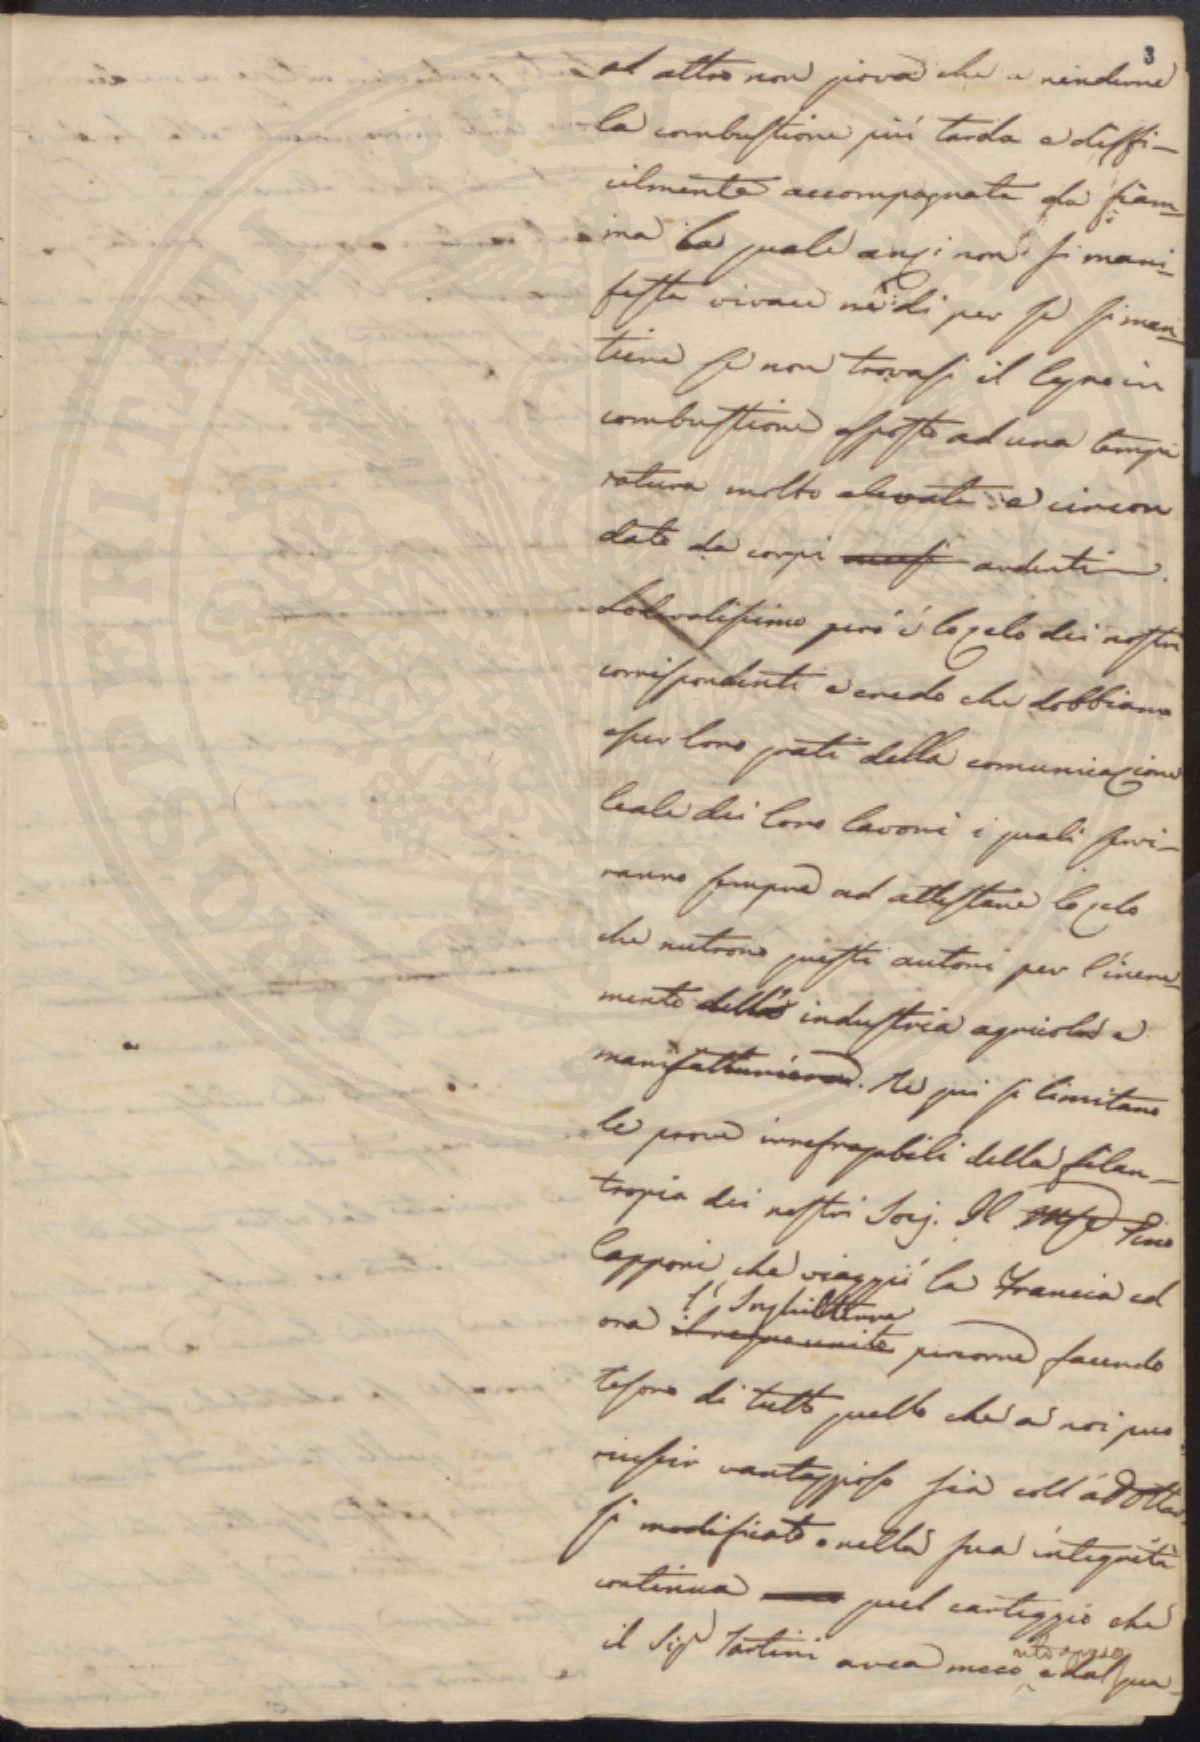 3
ad altro non giova che a renderne
la combustione piú tarda e diffi-
cilmente accompagnata da fiam-
ma la quale anzi non si mani-
festa vivace nè di per se si man-
tiene se non trovasi il legno in
combustione esposto ad una tempe
ratura molto elevata e circon
dato da corpi accesi ardenti.
Lodevolissimo peró é lo zelo dei nostri
corrispondenti e credo che dobbiamo
esser loro grati della comunicazione
leale dei loro lavori i quali servi-
ranno sempre ad attestare lo zelo
che nutrono questi autori per l'incre-
mento dell' industria agricola e
manifatturiera. Ne qui si limitano
le prove irrefragabili della filan-
tropia dei nostri Socj. Il March Gino
Capponi che viaggió la Francia ed
l'Inghilterra
ora il regno unito percorre facendo
tesoro di tutto quello che a noi puo
riuscir vantaggioso sia coll'adottar
si modificato o nella sua integrità
continua quel carteggio che
il Sigr Tartini avea meco e dal qua-
PROSPERITATI PUBLICAE